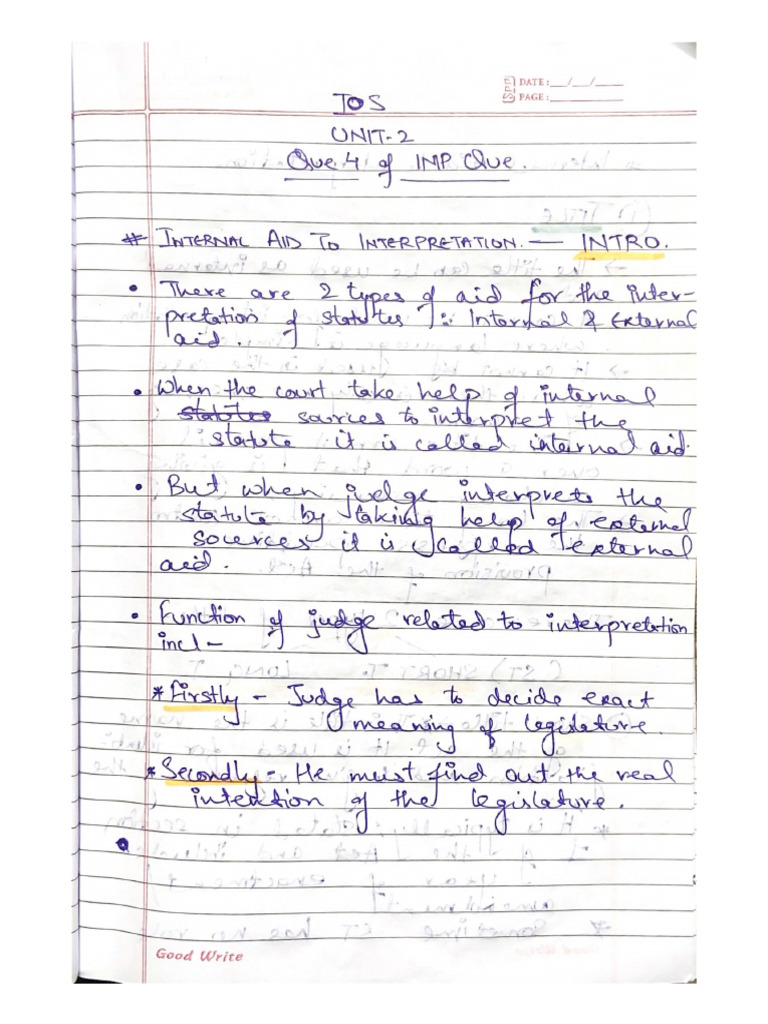 DATE: __/__/____
PAGE: ____________
IOS
UNIT-2
Que.4 of IMP Que.
# INTERNAL AID TO INTERPRETATION. — INTRO.
• There are 2 types of aid for the inter-
pretation of statutes :: Internal & External
aid.
• When the court take help of internal
statutes sources to interpret the
statute it is called internal aid.
• But when judge interprets the
statute by taking help of external
sources it is called external
aid.
• Function of judge related to interpretation
incl -
* Firstly - Judge has to decide exact
meaning of legislature.
* Secondly - He must find out the real
intention of the legislature.
Good Write